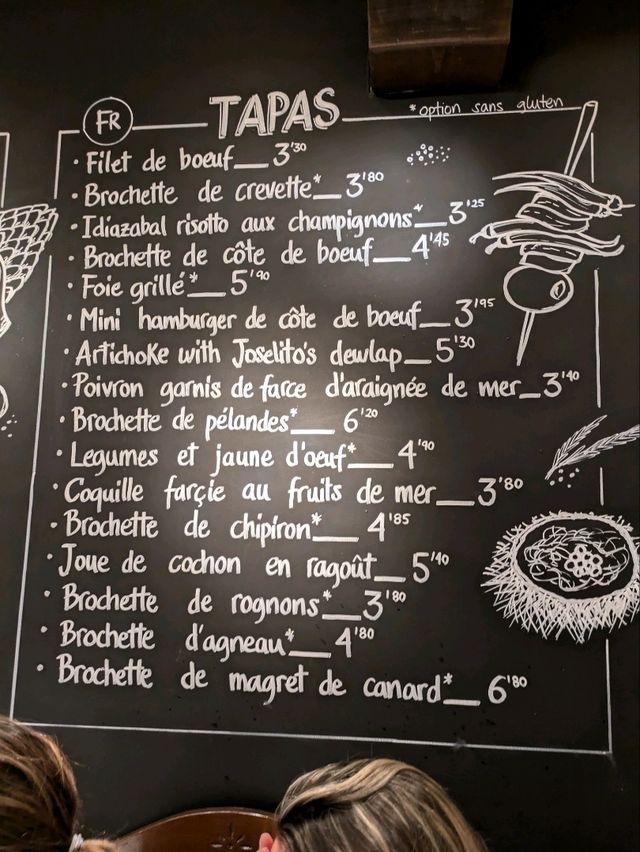 FR
TAPAS
*option sans gluten
· Filet de boeuf__3'30
· Brochette de crevette*__3'80
· Idiazabal risotto aux champignons*__3'25
· Brochette de côte de boeuf__4'45
· Foie grillé*__5'90
· Mini hamburger de côte de boeuf__3'95
· Artichoke with Joselito's dewlap__5'30
· Poivron garnis de farce d'araignée de mer__3'40
· Brochette de pélandes*__6'20
· Legumes et jaune d'oeuf*__4'90
· Coquille farçie au fruits de mer__3'80
· Brochette de chipiron*__4'85
· Joue de cochon en ragoût__5'40
· Brochette de rognons*__3'80
· Brochette d'agneau*__4'80
· Brochette de magret de canard*__6'80